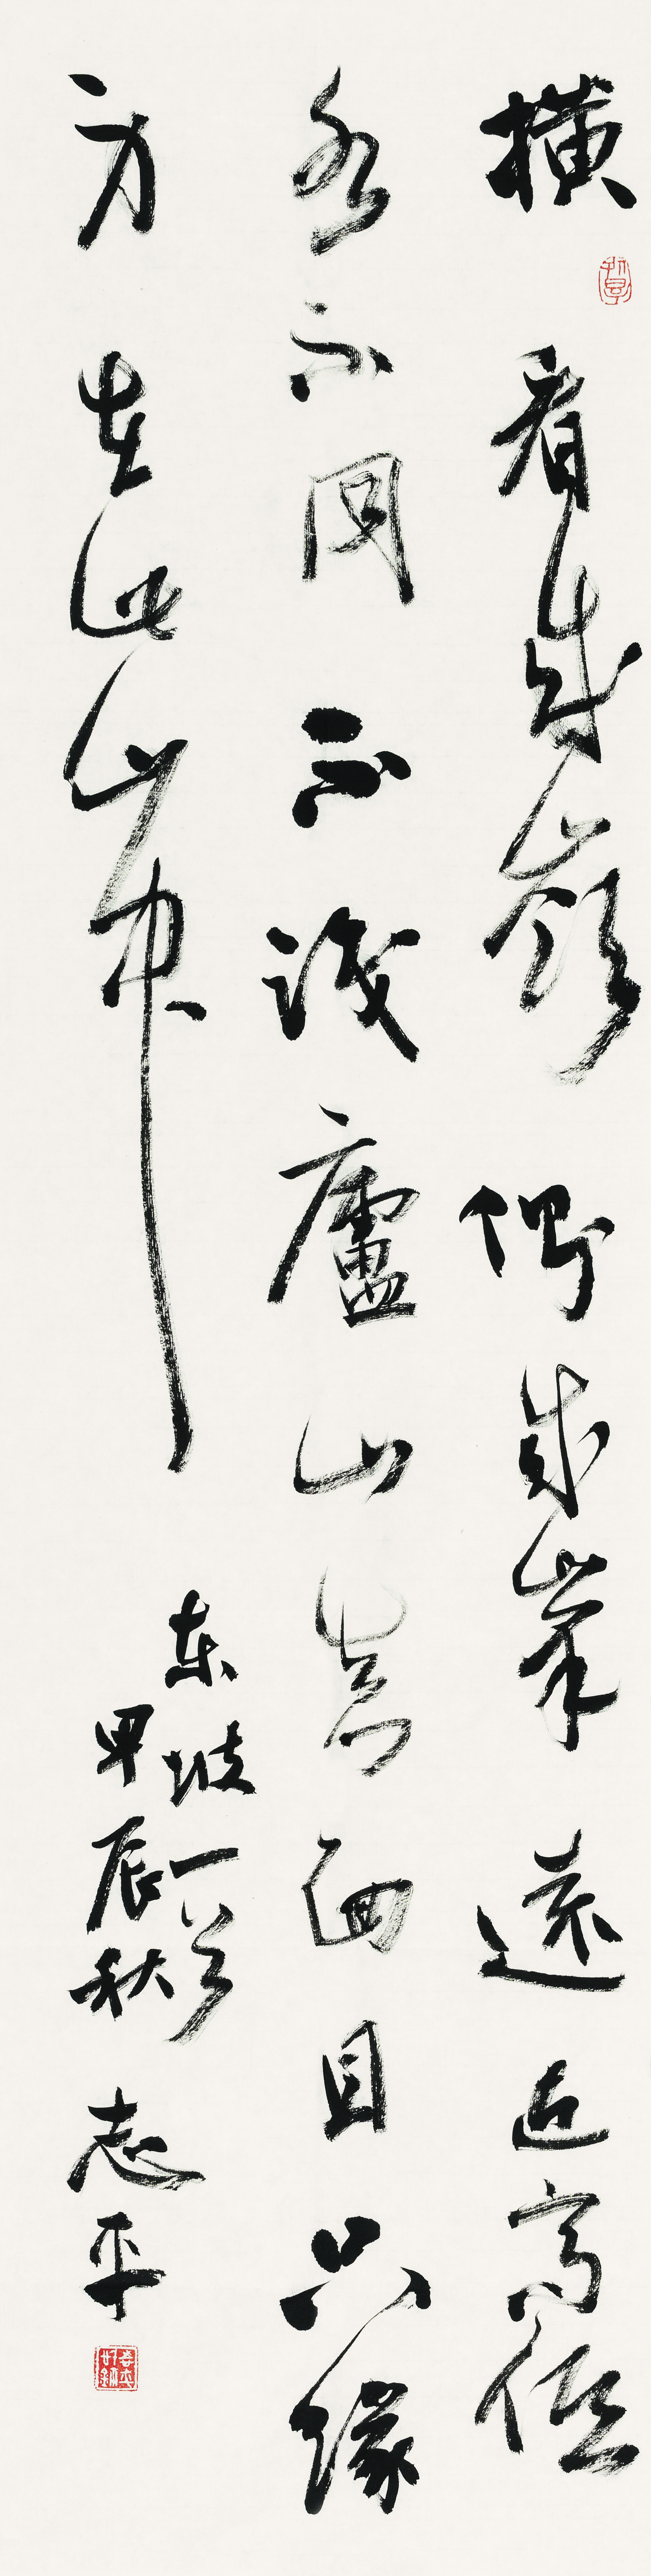 横看成嶺側成峯遠近高低
各不同不識廬山真面目只緣
身在此山中
东坡一首
甲辰秋 志平